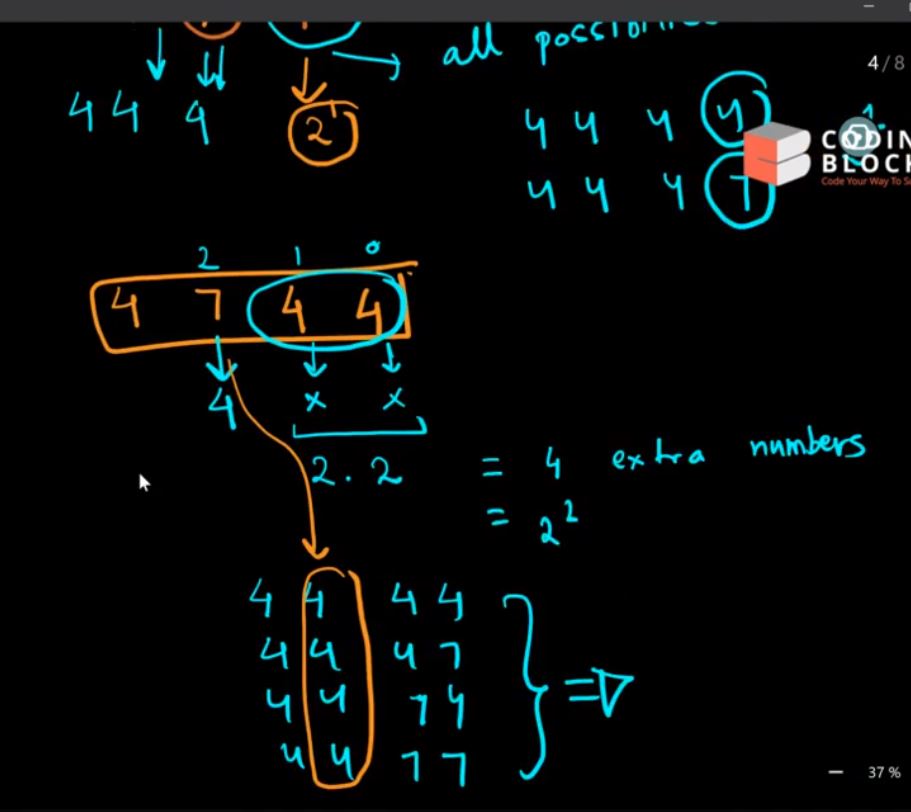 all possibilities
4 / 8
4 4 4
2
4 4 4 4
4 4 4 7
CODIN
BLOCK
Code Your Way To S
2 1 0
4 7 4 4
4 x x
2 . 2 = 4 extra numbers
= 2²
4 4 4 4
4 4 4 7
4 4 7 4
4 4 7 7
=>
37 %